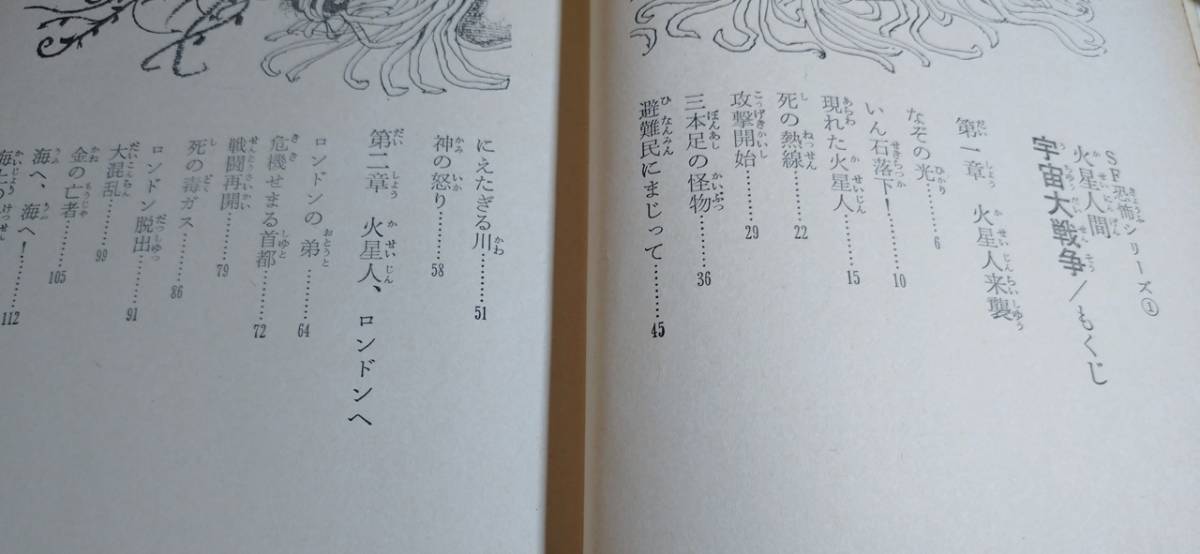 SF恐怖シリーズ①
火星人間
宇宙大戦争／もくじ
第一章 火星人来襲
なぞの光………6
いん石落下！………10
現れた火星人………15
死の熱線………22
攻撃開始………29
三本足の怪物………36
避難民にまじって………45
にえたぎる川………51
神の怒り………58
第二章 火星人、ロンドンへ
ロンドンの弟………64
危機せまる首都………72
戦闘再開………79
死の毒ガス………86
ロンドン脱出………91
大混乱………99
金の亡者………105
海へ、海へ！………112